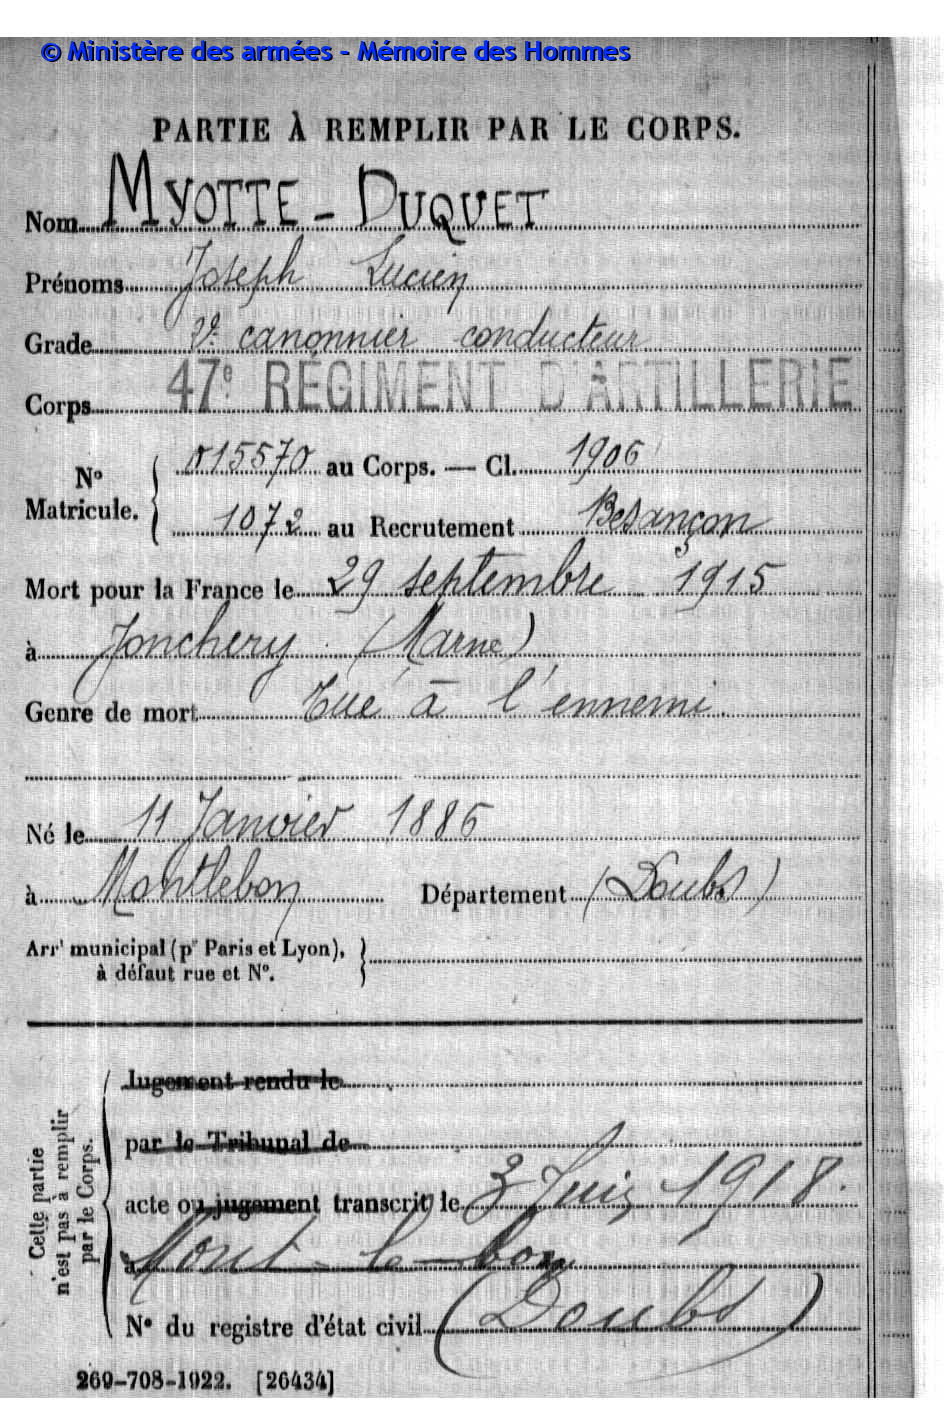 © Ministère des armées - Mémoire des Hommes
PARTIE À REMPLIR PAR LE CORPS.
Nom MYOTTE - DUQUET
Prénoms Joseph Lucien
Grade 2e canonnier conducteur
Corps 47e RÉGIMENT D'ARTILLERIE
No Matricule. { 015570 au Corps. — Cl. 1906
1072 au Recrutement Besançon
Mort pour la France le 29 septembre 1915
à Jonchery (Marne)
Genre de mort Tué à l'ennemi
Né le 11 Janvier 1886
à Montlebon Département (Doubs)
Arrt municipal (pr Paris et Lyon),
à défaut rue et No.
Cette partie n'est pas à remplir par le Corps.
Jugement rendu le
par le Tribunal de
acte ou jugement transcrit le 3 Juin 1918.
à Mont-le-bon
No du registre d'état civil (Doubs)
269-708-1922. [26434]